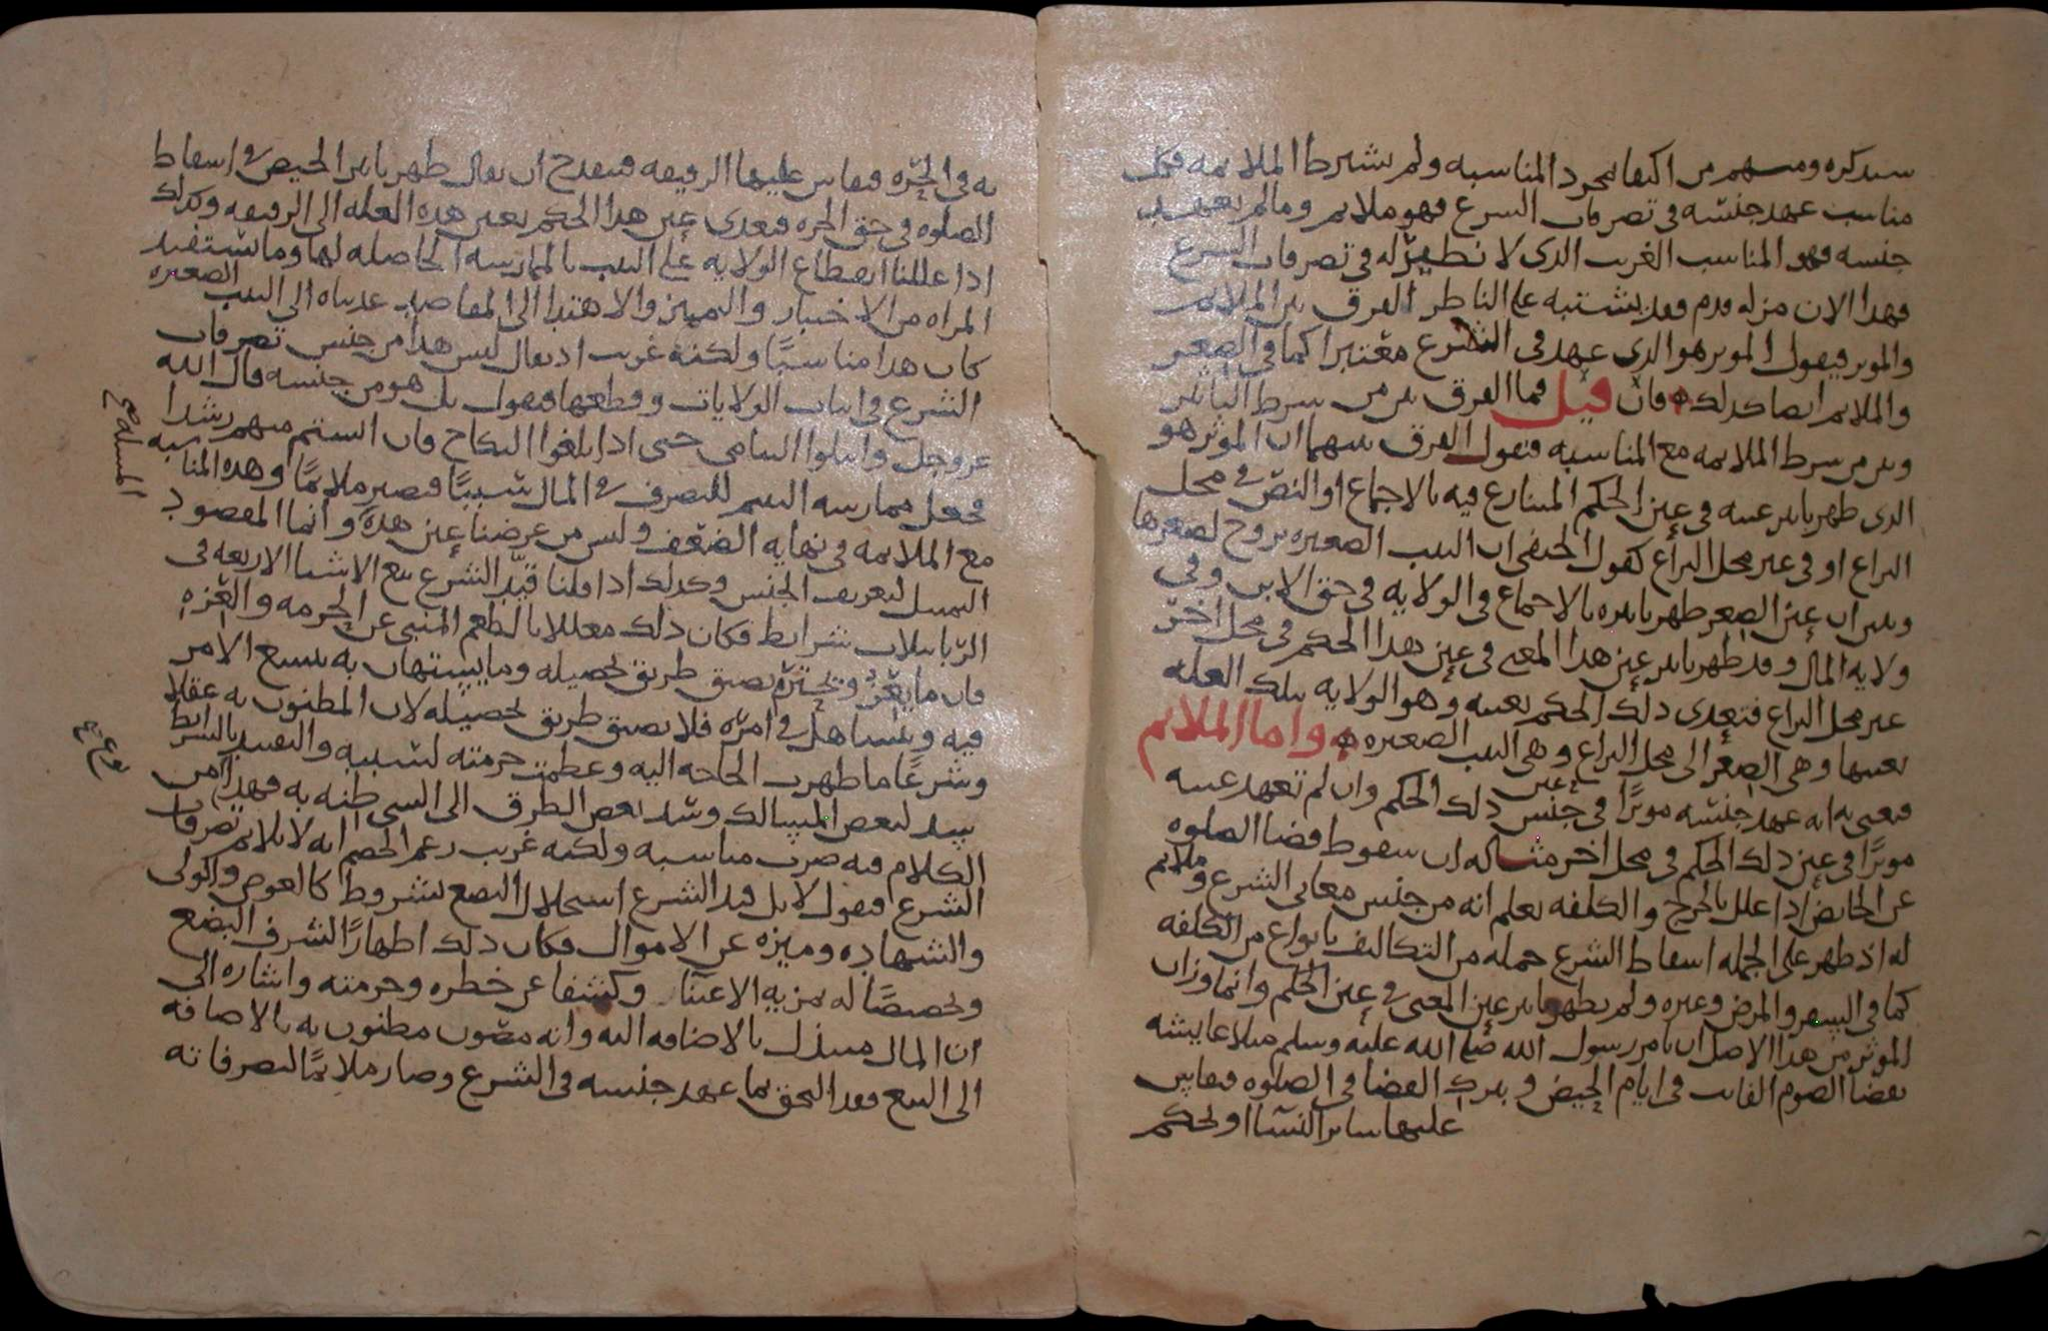 سنذكره ومنهم من اكتفا بمجرد المناسبه ولم يشترط الملايمه فكل
مناسب عهد جنسه في تصرفات الشرع فهو ملايم وما لم يعهد
جنسه فهو المناسب الغريب الذي لا نظير له في تصرفات الشرع
فهدا الان مزله قدم فقد يشتبه على الناظر الفرق بين الملايم
والموثر فيقول الموثر هو الذي عهد في الشرع معتبرا كما في الصغر
والملايم ايضا كذلك فان قيل فما الفرق بين من شرط التاثير
وبين من شرط الملايمه مع المناسبه فنقول الفرق بينهما ان الموثر هو
الذي ظهر تاثير عينه في عين الحكم المتنازع فيه بالاجماع او النص في محل
النزاع او في غير محل النزاع كقول الحنفي ان الثيب الصغيره تزوج لصغرها
وتبين ان عين الصغر ظهر تاثيره بالاجماع في الولايه في حق الابن وفي
ولايه المال وقد ظهر تاثير عين هذا المعنى في عين هذا الحكم في محل اخر
غير محل النزاع فتعدى ذلك الحكم بعينه وهو الولايه بتلك العله
بعينها وهي الصغر الى محل النزاع وهي الثيب الصغيره واما الملايم
فنعني به انه عهد جنسه موثرا في جنس ذلك الحكم وان لم تعهد عينه
موثرا في عين ذلك الحكم في محل اخر مثاله ان سقوط قضا الصلوه
عن الحايض اذا علل بالحرج والكلفه يعلم انه من جنس معاني الشرع وملايم
له اذ ظهر على الجمله اسقاط الشرع جمله من التكاليف بانواع من الكلفه
كما في السفر والمرض وغيره ولم يظهر تاثير عين المعنى في عين الحكم وانما وزان
الموثر من هذا الاصل ان يامر رسول الله صلى الله عليه وسلم مثلا عايشه
بقضا الصوم الفايت في ايام الحيض وبترك القضا في الصلوه فيقاس
عليها ساير النسا او يحكم
به في الحره فيقاس عليها الرقيقه فينقدح ان يقال ظهر تاثير الحيض في اسقاط
الصلوه في حق الحره فيعدى عين هذا الحكم بعين هذه العله الى الرقيقه وكذلك
اذا عللنا انقطاع الولايه على الثيب بالممارسه الحاصله لها وما تستفيد
المراه من الاختبار والتمييز والاهتدا الى المقاصد عديناه الى الثيب الصغيره
كان هذا مناسبا ولكنه غريب اذ يقال ليس هذا من جنس تصرفات
الشرع في اثبات الولايات وقطعها فنقول بل هو من جنسه قال الله
عز وجل وابتلوا اليتامى حتى اذا بلغوا النكاح فان انستم منهم رشدا
فجعل ممارسه اليتيم للتصرف في المال سببا فيصير ملايما وهذه المناسبه
مع الملايمه في نهايه الضعف وليس من غرضنا عين هذه وانما المقصود
التمثيل لتعريف الجنس وكذلك اذا قلنا قيد الشرع بيع الاشيا الاربعه في
الربا بثلاث شرايط فكان ذلك معللا بالطعم المنبي عن الحرمه والعزه
فان ما يعز ويحترم يضيق طريق تحصيله وما يستهان به يتسع الامر
فيه ويتساهل في امره فلا يضيق طريق تحصيله لان المظنون به عقلا
وشرعا ما ظهرت الحاجه اليه وعظمت حرمته لسببه والتقييد بالشرايط
سد لبعض المسالك وسد بعض الطرق الى الشي ظنه به فهذا من
الكلام فيه ضرب مناسبه ولكنه غريب زعم الخصم انه لا يلايم تصرفات
الشرع فنقول لا بل قيد الشرع استحلال البضع بشروط كالعوض والولي
والشهاده وميزه عن الاموال فكان ذلك اظهارا لشرف البضع
وتخصيصا له بمزيه الاعتنا وكشفا عن خطره وحرمته واشاره الى
ان المال مبتذل بالاضافه اليه وانه مصون مظنون به بالاضافه
الى البيع فقد التحق بما عهد جنسه في الشرع وصار ملايما لتصرفاته